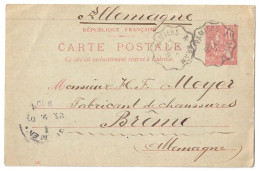 Allemagne
RÉPUBLIQUE FRANÇAISE
CARTE POSTALE
Ce côté est exclusivement réservé à l'adresse.
Monsieur H. F. Meyer
Fabricant de chaussures
Brême
(Allemagne)